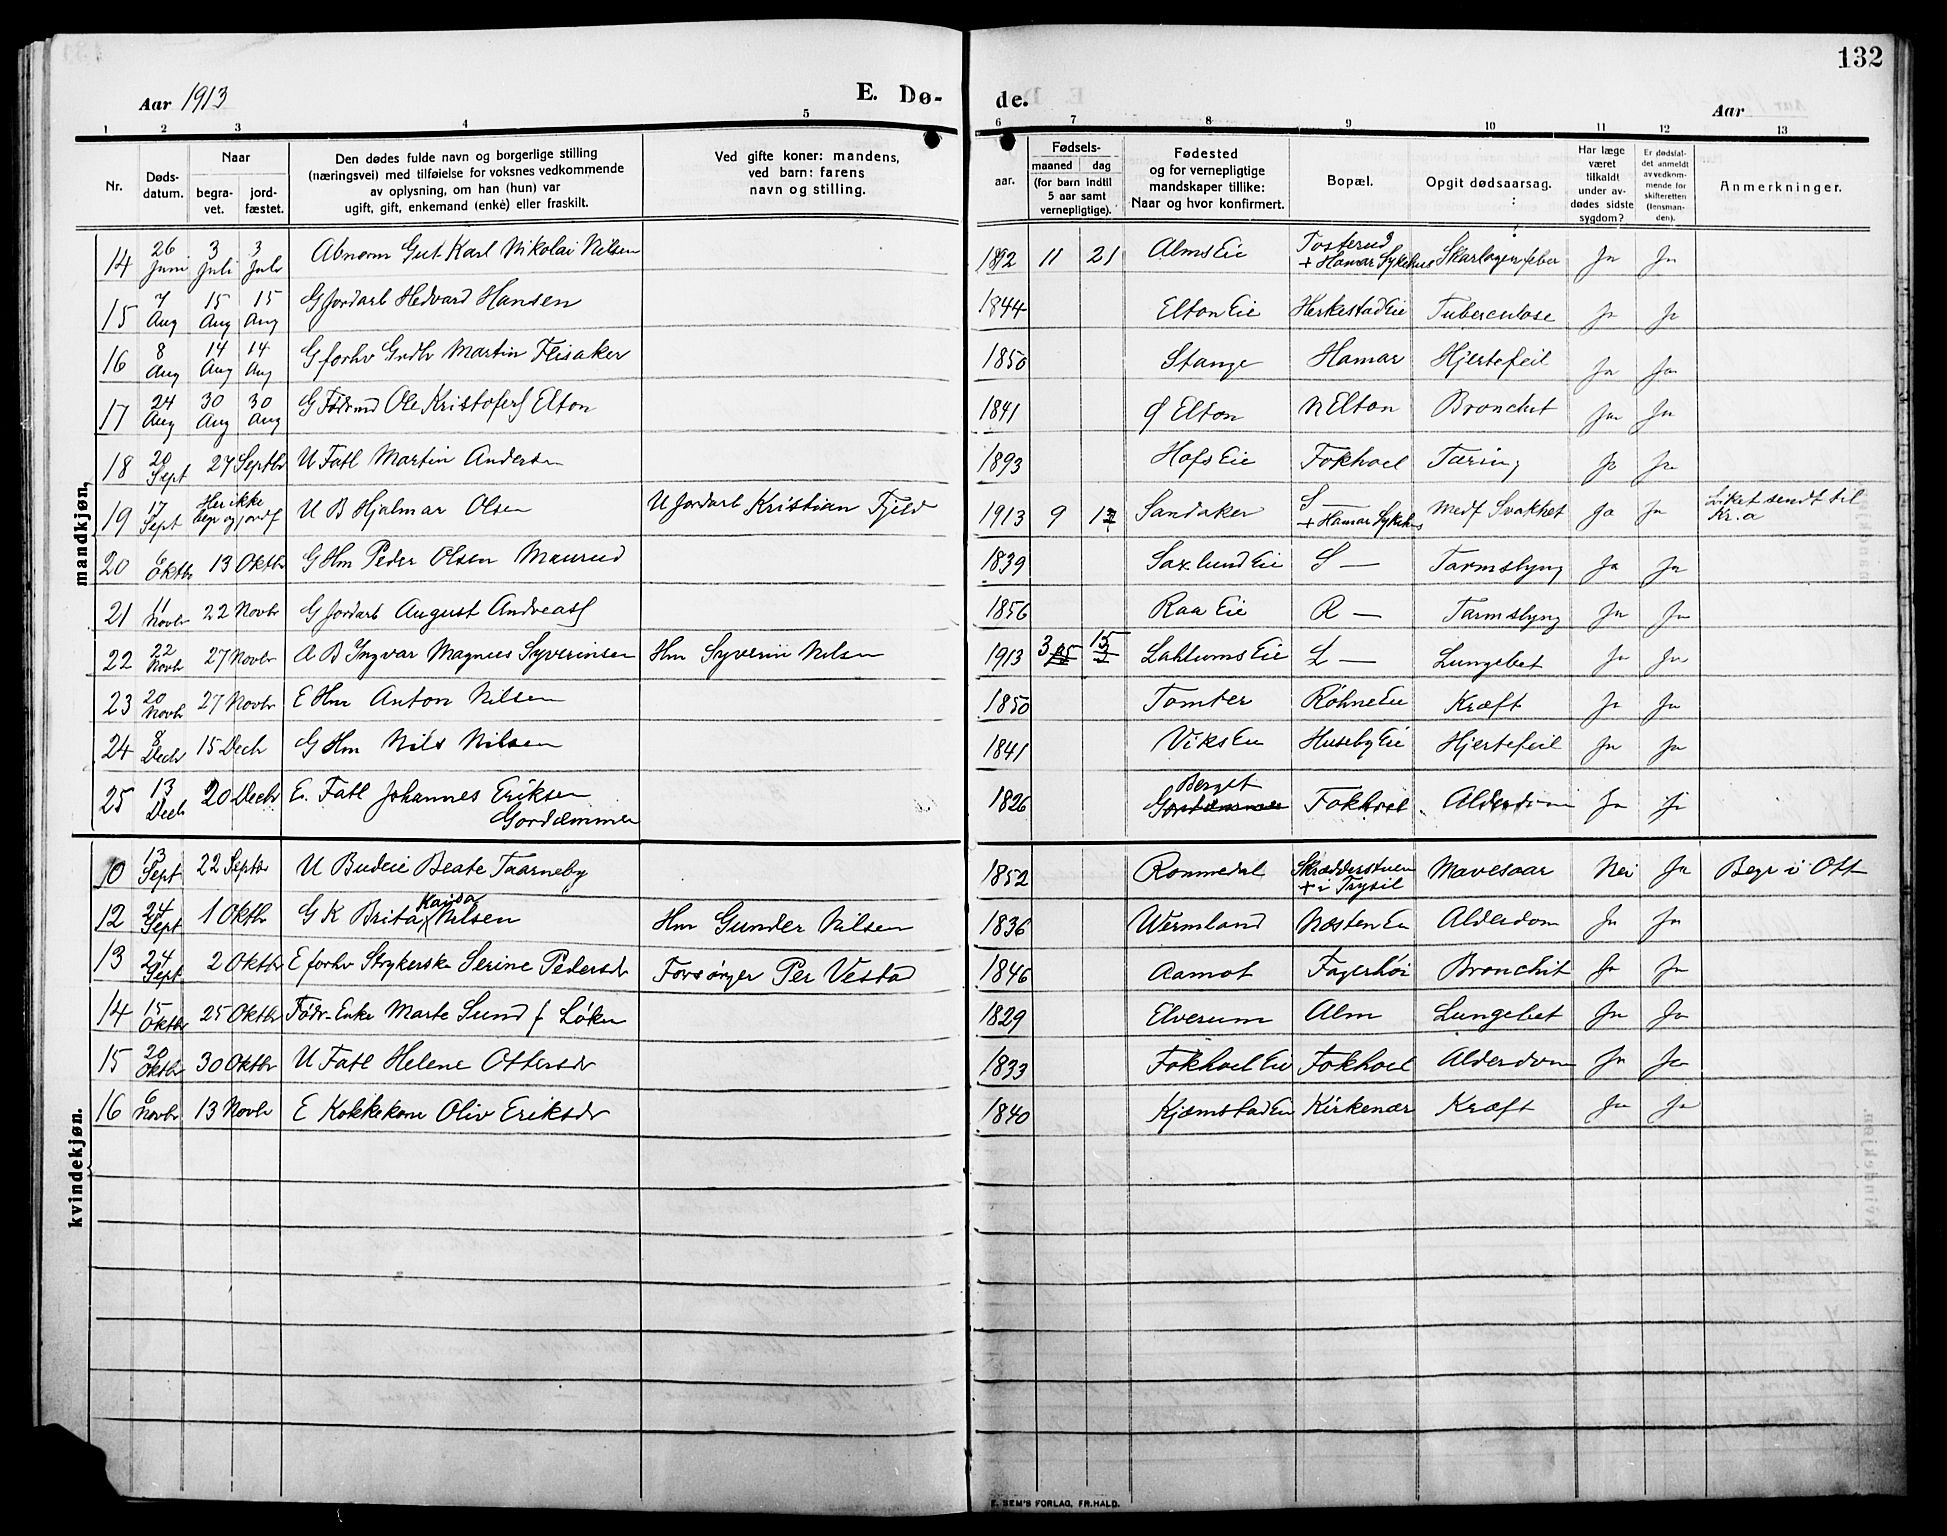 132
Aar 1913
E. Dø-
de.
Aar
1 2 3 4 5 6 7 8 9 10 11 12 13
Nr.
Døds-
datum.
Naar
begra-
vet.
jord-
fæstet.
Den dødes fulde navn og borgerlige stilling
(næringsvei) med tilføielse for voksnes vedkommende
av oplysning, om han (hun) var
ugift, gift, enkemand (enke) eller fraskilt.
Ved gifte koner: mandens,
ved barn: farens
navn og stilling.
aar.
Fødsels-
maaned dag
(for barn indtil
5 aar samt
vernepligtige).
Fødested
og for vernepligtige
mandskaper tillike:
Naar og hvor konfirmert.
Bopæl.
Opgit dødsaarsag.
Har læge
været
tilkaldt
under av-
dødes sidste
sygdom?
Er dødsfal-
det anmeldt
av vedkom-
mende for
skifteretten
(lensman-
den).
Anmerkninger.
mandkjøn,
14 26 Juni 3 Juli 3 Juli Abnorm Gut Karl Nikolai Nilsen 1892 11 21 Alms Eie Tosterud + Hamar Sykehus Skarlagensfeber Ja Ja
15 7 Aug 15 Aug 15 Aug G Jordarb Hedvard Hansen 1844 Elton Eie Herkestad Eie Tuberculose Ja Ja
16 8 Aug 14 Aug 14 Aug G forhv Grdbr Martin Flisaker 1850 Stange Hamar Hjertefeil Ja Ja
17 24 Aug 30 Aug 30 Aug G Fødrmd Ole Kristofers Elton 1841 Ø Elton N Elton Bronchit Ja Ja
18 20 Sept 27 Septbr U Fatl Martin Andersen 1893 Hofs Eie Fokhoel Tæring Ja Ja
19 17 Sept Her ikke begr og jordf U B Hjalmar Olsen U Jordarb Kristian Fjeld 1913 9 Sandaker S — + Hamar Sykehus Medf Svakhet Ja Ja Liket sendt til Kr.a
20 Oktbr 13 Oktbr G Hm Peder Olsen Maurud 1839 Saxlund Eie S — Tarmslyng Ja Ja
21 11 Novbr 22 Novbr G Jordarb August Andreass 1856 Raa Eie R — Tarmslyng Ja Ja
22 22 Novbr 27 Novbr A B Ingvar Magnus Syverinsen Hm Syverin Nilsen 1913 3 15 Lahlums Eie L — Lungebet Ja Ja
23 20 Novbr 27 Novbr E Hm Anton Nilsen 1850 Tomter Røhne Eie Kræft Ja Ja
24 8 Decbr 15 Decbr G Hm Nils Nilsen 1841 Viks Eie Huseby Eie Hjertefeil Ja Ja
25 13 Decbr 20 Decbr E. Fatl Johannes Eriksen Gordæmmen 1826 Berget Fokhoel Alderdom Ja Ja
kvindekjøn.
10 13 Sept 22 Septbr U Budeie Beate Taarneby 1852 Rommedal Skrædderstuen + i Trysil Mavesaar Nei Ja Begr i Ott
12 24 Sept 1 Oktbr G K Brita Kaisa Nilsen Hm Gunder Nilsen 1836 Wermland Næsten Eie Alderdom Ja Ja
13 24 Sept 2 Oktbr E forhv Strykerske Serine Pedersdr Forsørger Per Vestad 1846 Aamot Fagerhøi Bronchit Ja Ja
14 15 Oktbr 25 Oktbr Fødr-Enke Marte Sund f Løken 1829 Elverum Alm Lungebet Ja Ja
15 20 Oktbr 30 Oktbr U Fatl Helene Ottersdr 1833 Fokhoel Eie Fokhoel Alderdom Ja Ja
16 6 Novbr 13 Novbr E Kokkekone Oliv Eriksdr 1840 Kjæmstad Eie Kirkenær Kræft Ja Ja
E. SEM'S FORLAG, FR.HALD.